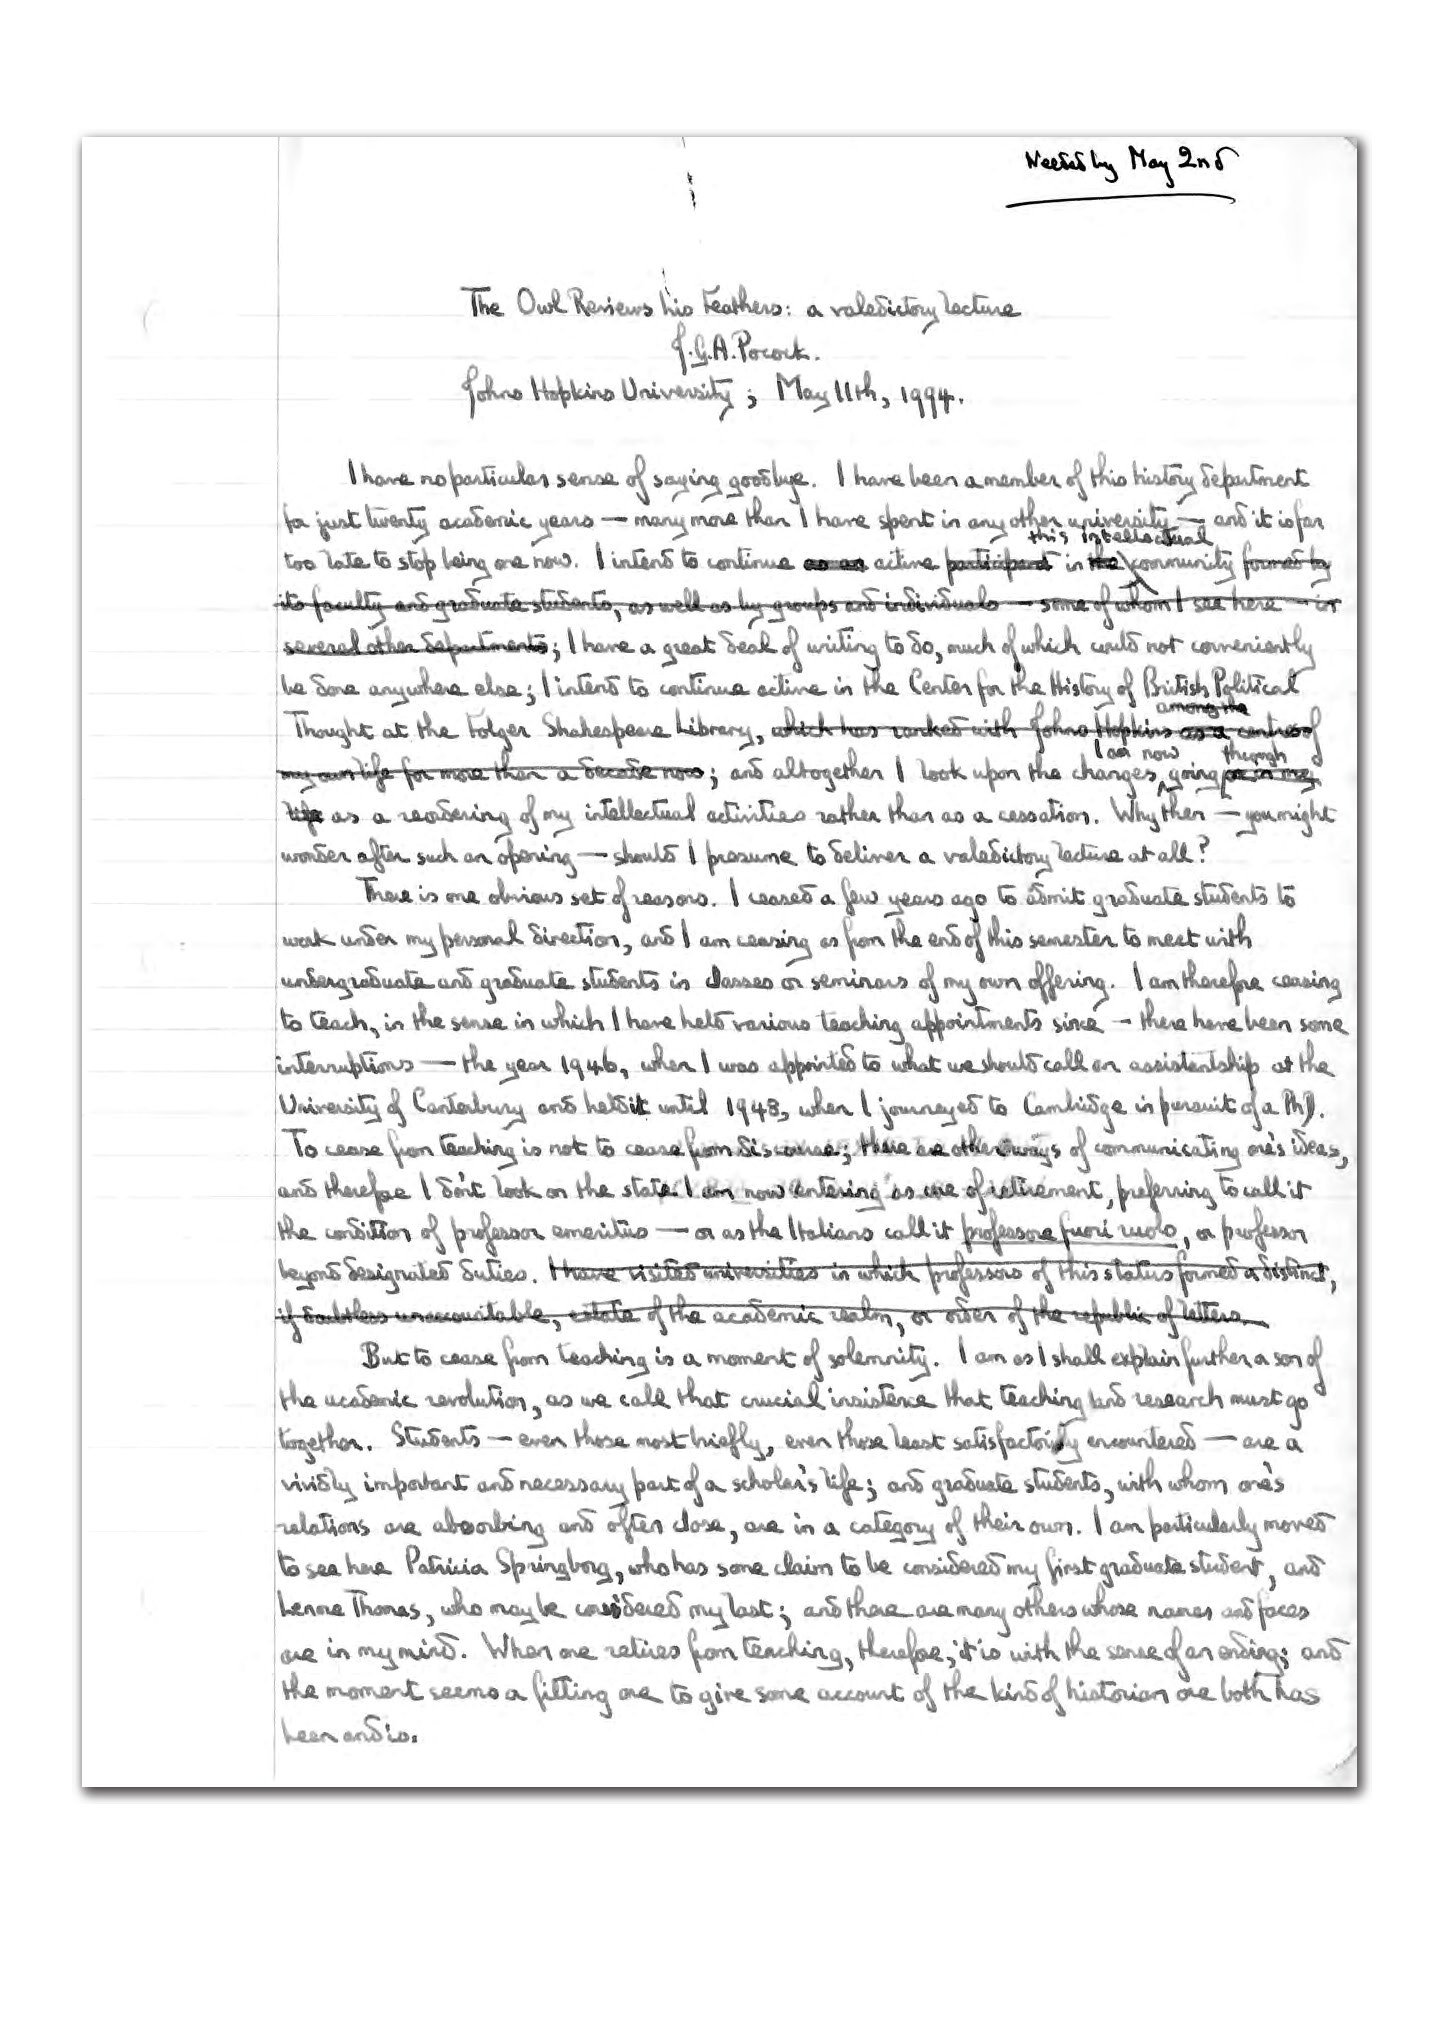 Needed by May 2nd
The Owl Reviews his Feathers: a valedictory lecture
J.G.A. Pocock.
Johns Hopkins University; May 11th, 1994.
I have no particular sense of saying goodbye. I have been a member of this history department
for just twenty academic years — many more than I have spent in any other university — and it is far
this intellectual
too late to stop being one now. I intend to continue as an active participant in the community formed by
its faculty and graduate students, as well as by groups and individuals — some of whom I see here — in
several other departments; I have a great deal of writing to do, much of which could not conveniently
be done anywhere else; I intend to continue active in the Center for the History of British Political
among the
Thought at the Folger Shakespeare Library, which has ranked with Johns Hopkins as a centre of
I am now through
my own life for more than a decade now; and altogether I look upon the changes going on in my
life as a reordering of my intellectual activities rather than as a cessation. Why then — you might
wonder after such an opening — should I presume to deliver a valedictory lecture at all?
There is one obvious set of reasons. I ceased a few years ago to admit graduate students to
work under my personal direction, and I am ceasing as from the end of this semester to meet with
undergraduate and graduate students in classes or seminars of my own offering. I am therefore ceasing
to teach, in the sense in which I have held various teaching appointments since — there have been some
interruptions — the year 1946, when I was appointed to what we should call an assistantship at the
University of Canterbury and held it until 1948, when I journeyed to Cambridge in pursuit of a PhD.
To cease from teaching is not to cease from discourse; there are other ways of communicating one's ideas,
and therefore I don't look on the state I am now entering as one of retirement, preferring to call it
the condition of professor emeritus — or as the Italians call it professore fuori ruolo, or professor
beyond designated duties. I have visited universities in which professors of this status formed a distinct,
if doubtless unaccountable, estate of the academic realm, or order of the republic of letters.
But to cease from teaching is a moment of solemnity. I am as I shall explain further a son of
the academic revolution, as we call that crucial insistence that teaching and research must go
together. Students — even those most briefly, even those least satisfactorily encountered — are a
vividly important and necessary part of a scholar's life; and graduate students, with whom one's
relations are absorbing and often close, are in a category of their own. I am particularly moved
to see here Patricia Springborg, who has some claim to be considered my first graduate student, and
Lenne Thomas, who may be considered my last; and there are many others whose names and faces
are in my mind. When one retires from teaching, therefore, it is with the sense of an ending; and
the moment seems a fitting one to give some account of the kind of historian one both has
been and is.